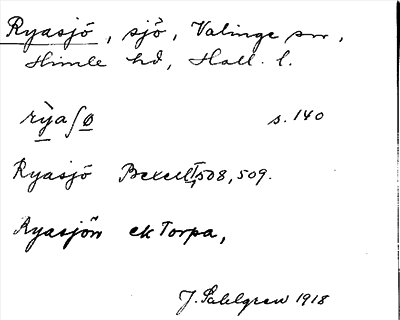 Ryasjö, sjö, Valinge sn,
Himle hd, Hall. l.
rỳa ʃø s. 140
Ryasjö Bexell I, 508, 509.
Ryasjön ek Torpa,
J. Sahlgren 1918